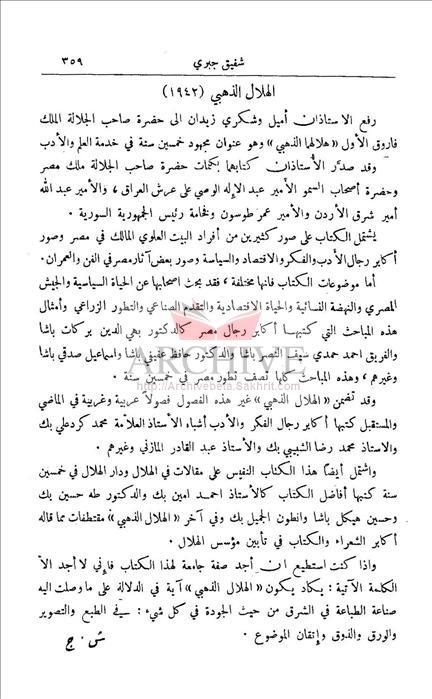 شفيق جبري ٣٥٩
الهلال الذهبي (١٩٤٢)
رفع الاستاذان أميل وشكري زيدان الى حضرة صاحب الجلالة الملك
فاروق الأول « هلالها الذهبي » وهو عنوان مجهود خمسين سنة في خدمة العلم والأدب
وقد صدّر الأستاذان كتابهما بكلمات حضرة صاحب الجلالة ملك مصر
وحضرة أصحاب السمو الأمير عبد الإله الوصي على عرش العراق ، والأمير عبد الله
أمير شرق الأردن والأمير عمر طوسون وفخامة رئيس الجمهورية السورية .
يشتمل الكتاب على صور كثيرين من أفراد البيت العلوي المالك في مصر وصور
أكابر رجال الأدب والفكر والاقتصاد والسياسة وصور بعض آثار مصر في الفن والعمران .
أما موضوعات الكتاب فانها مختلفة ، فقد بحث اصحابها عن الحياة السياسية والجيش
المصري والنهضة النسائية والحياة الاقتصادية والتقدم الصناعي والتطور الزراعي وأمثال
هذه المباحث التي كتبها أكابر رجال مصر كالدكتور بهي الدين بركات باشا
والفريق احمد حمدي سيف النصر باشا والدكتور حافظ عفيفي باشا واسماعيل صدقي باشا
وغيرهم ، وهذه المباحث كلها تصف تطور مصر في خمسين سنة .
ARCHIVE
http://Archivebeta.Sakhrit.com
وقد تضمن « الهلال الذهبي » غير هذه الفصول فصولاً عربية وغربية في الماضي
والمستقبل كتبها أكابر رجال الفكر والأدب أشباه الأستاذ العلامة محمد كرد علي بك
والاستاذ محمد رضا الشبيبي بك والأستاذ عبد القادر المازني وغيرهم .
واشتمل أيضاً هذا الكتاب النفيس على مقالات في الهلال ودار الهلال في خمسين
سنة كتبها أفاضل الكتاب كالأستاذ احمد امين بك والدكتور طه حسين بك
وحسين هيكل باشا وانطون الجميل بك وفي آخر « الهلال الذهبي » مقتطفات مما قاله
أكابر الشعراء والكتاب في تأبين مؤسس الهلال .
واذا كنت استطيع ان أجد صفة جامعة لهذا الكتاب فاني لا أجد الا
الكلمة الآتية : يكاد يكون « الهلال الذهبي » آية في الدلالة على ما وصلت اليه
صناعة الطباعة في الشرق من حيث الجودة في كل شيء : في الطبع والتصوير
والورق والذوق وإتقان الموضوع .
ش . ج